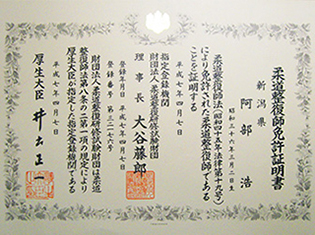 柔道整復師免許証明書
新潟県
阿部 浩
昭和三十六年三月二日生
柔道整復師法(昭和四十五年法律第十九号)
により免許された柔道整復師である
ことを証明する
平成七年四月七日
指定登録機関
財団法人柔道整復研修試験財団
理事長 大谷藤郎
登録年月日 平成七年四月七日
登録番号 第三二一六号
財団法人柔道整復研修試験財団は柔道
整復師法第八条の二第一項の規定により
厚生大臣が指定した指定登録機関である
平成七年四月七日
厚生大臣 井出正一